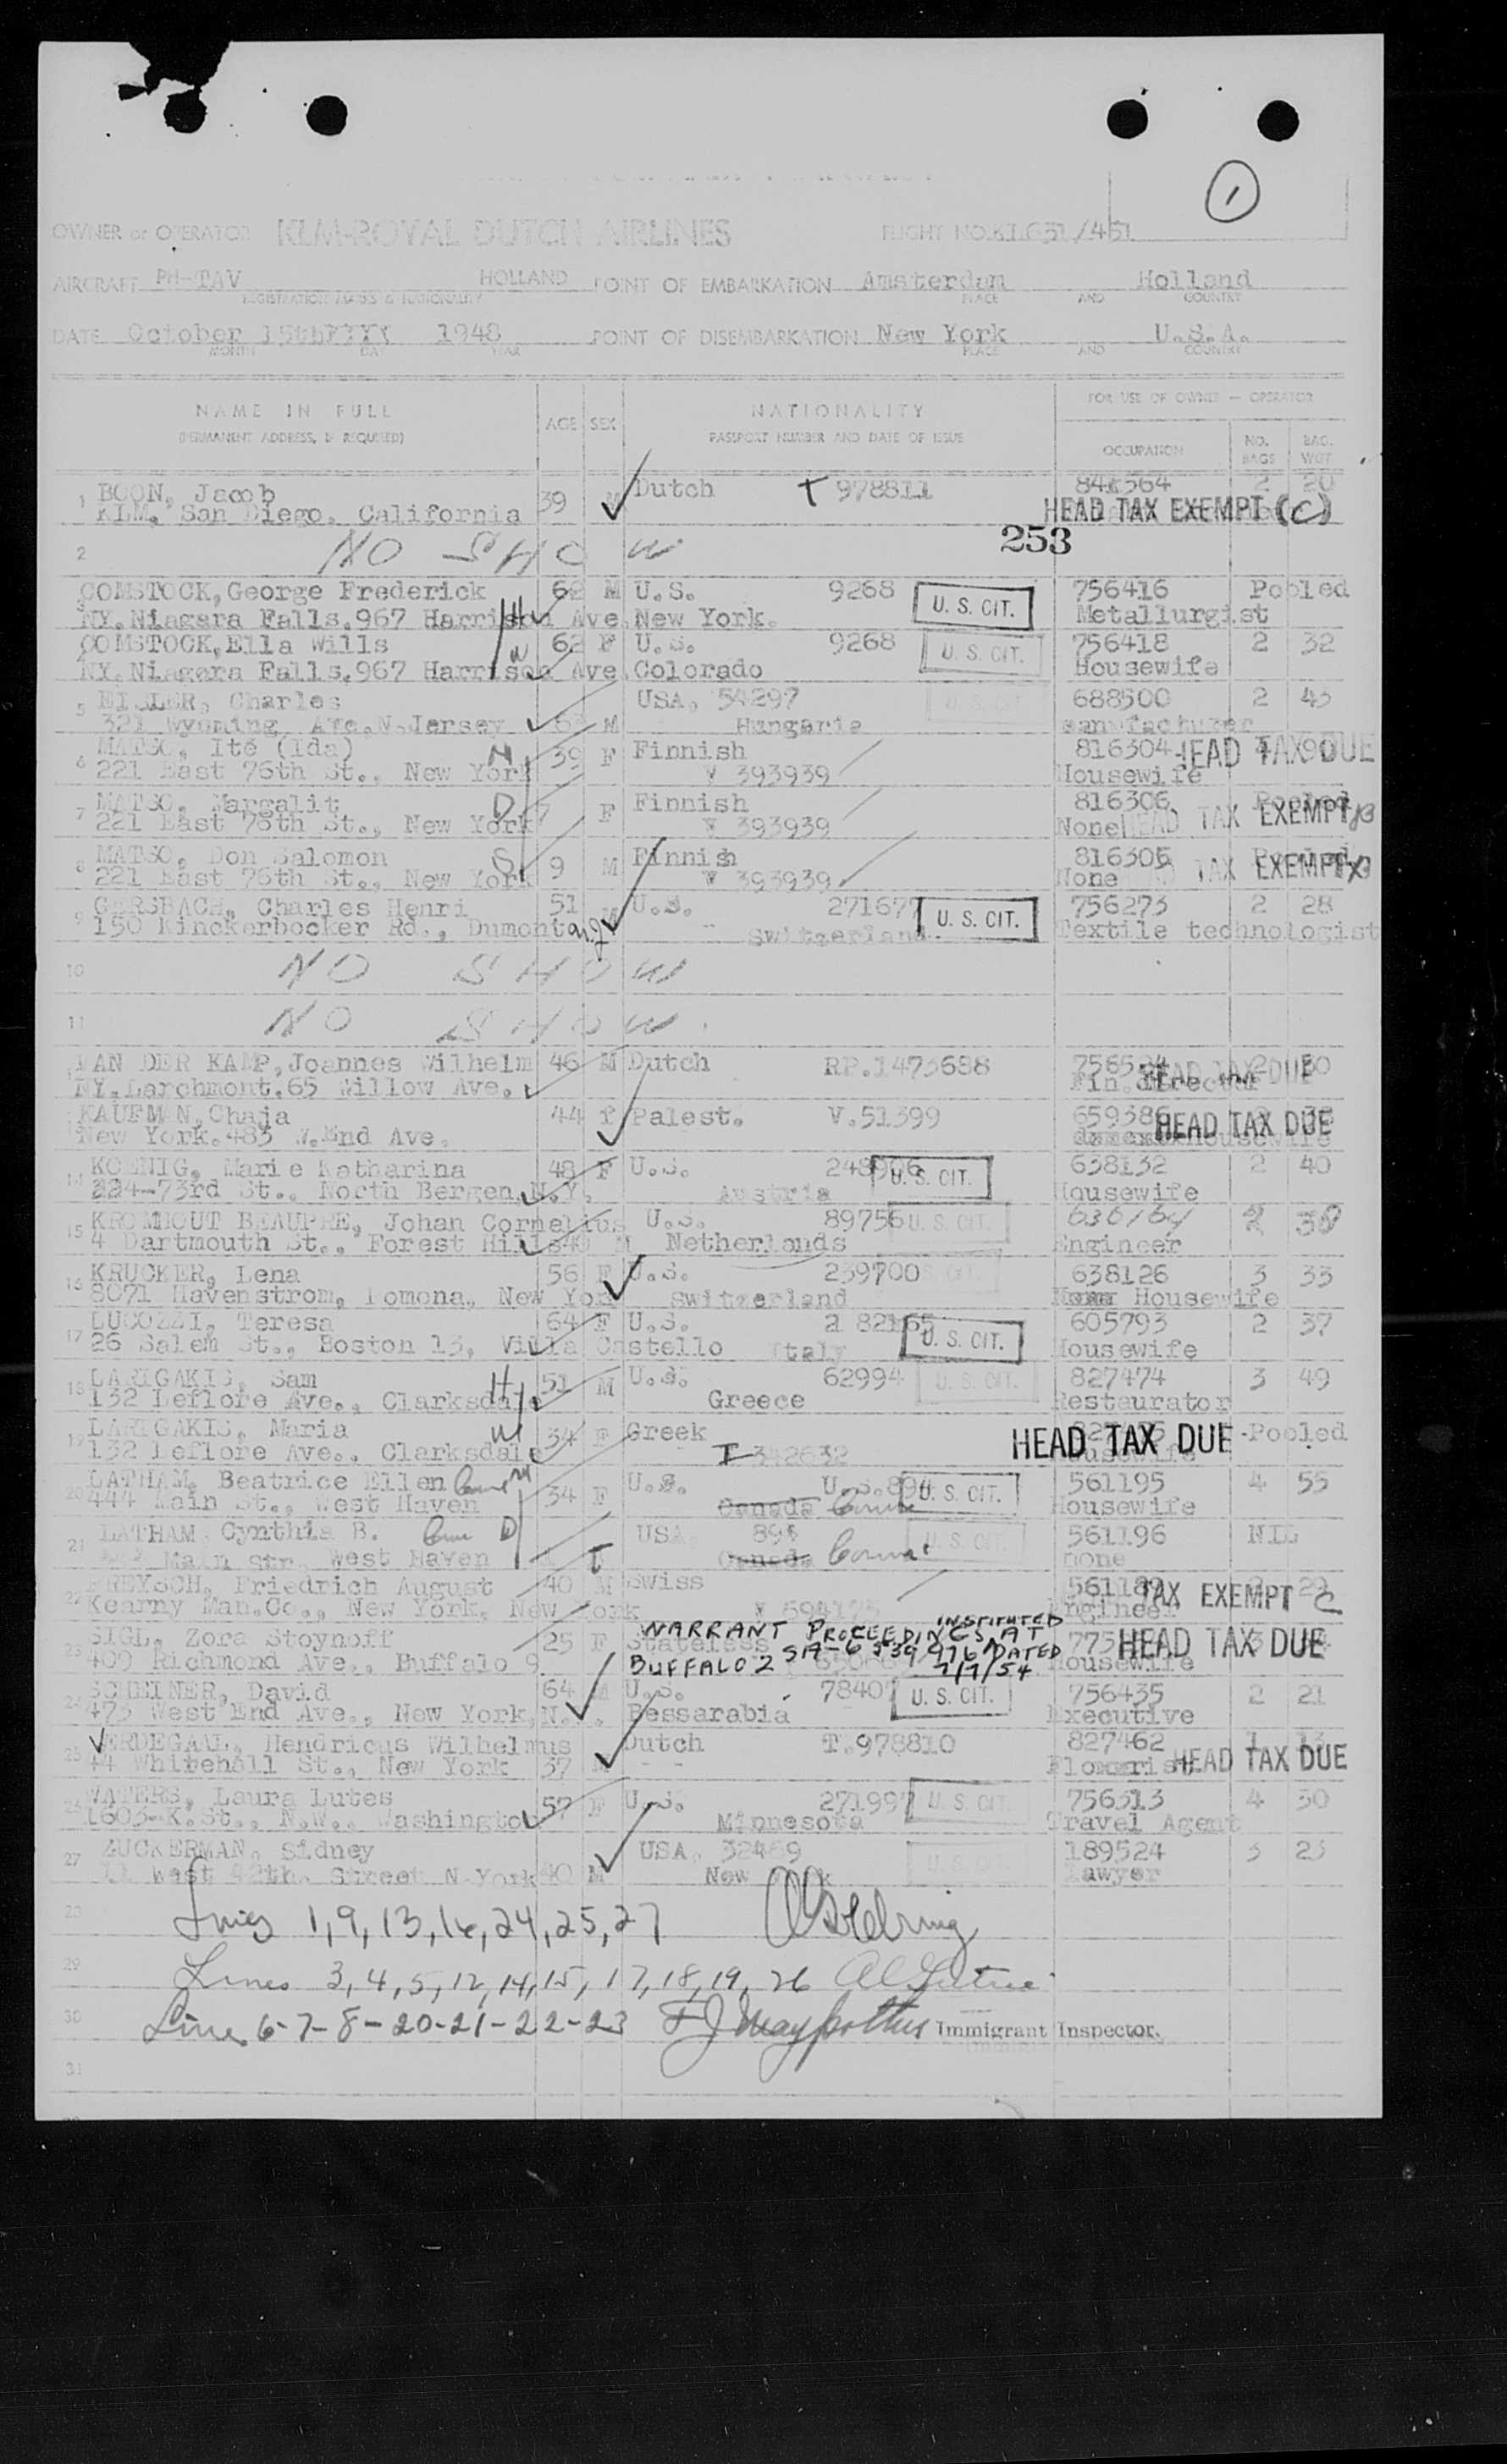 1
OWNER or OPERATOR KLM-ROYAL DUTCH AIRLINES FLIGHT NO.KL631/451
AIRCRAFT PH-TAV HOLLAND POINT OF EMBARKATION Amsterdam Holland
REGISTRATION MARKS & NATIONALITY PLACE AND COUNTRY
DATE October 15th 1948 POINT OF DISEMBARKATION New York U.S.A.
MONTH DAY YEAR PLACE AND COUNTRY
NAME IN FULL AGE SEX NATIONALITY FOR USE OF OWNER - OPERATOR
(PERMANENT ADDRESS, IF REQUIRED) PASSPORT NUMBER AND DATE OF ISSUE OCCUPATION NO. BAGS BAG. WGT
1 BOON, Jacob 39 M Dutch T 978811 2 20
KLM. San Diego, California HEAD TAX EXEMPT (C)
2 NO SHOW 253
3 COMSTOCK, George Frederick 62 M U.S. 9268 U. S. CIT. 756416 Pooled
NY. Niagara Falls. 967 Harrison Ave. New York. Metallurgist
COMSTOCK, Ella Wills 62 F U.S. 9268 U. S. CIT. 756418 2 32
NY. Niagara Falls. 967 Harrison Ave. Colorado Housewife
5 Charles USA, 54297 U. S. CIT. 688500 2 43
321 Wyoming Ave. N-Jersey M Hungaria manufacturer
6 MATSO, Ite (Ida) 39 F Finnish 816304 HEAD TAX DUE
221 East 76th St., New York V 393939 Housewife
7 MATSO, Margalit 7 F Finnish 816306 Pooled
221 East 76th St., New York V 393939 None HEAD TAX EXEMPT
8 MATSO, Don Salomon 9 M Finnish 816305 Pooled
221 East 76th St., New York V 393939 None TAX EXEMPT
9 GERSBACH, Charles Henri 51 M U.S. 271677 U. S. CIT. 756273 2 28
150 Kinckerbocker Rd., Dumont N.J. Switzerland Textile technologist
10 NO SHOW
11 NO SHOW
VAN DER KAMP, Joannes Wilhelm 46 M Dutch RP.1473688 HEAD TAX DUE
NY. Larchmont. 65 Willow Ave. Fin. director
KAUFMAN, Chaja 44 F Palest. V.51399 659386 HEAD TAX DUE
New York. 483 W. End Ave. housewife
14 KOENIG, Marie Katharina 48 F U.S. 248906 U. S. CIT. 638132 2 40
224-73rd St., North Bergen, N.Y. Austria Housewife
15 KROMHOUT BEAUPRE, Johan Cornelius U.S. 89756 U. S. CIT.
4 Dartmouth St., Forest Hills M Netherlands Engineer
16 KRUCKER, Lena 56 F U.S. 239700 CIT. 638126 3 33
8071 Havenstrom, Pomona, New York Switzerland Housewife
17 LUCOZZI, Teresa 64 F U.S. U. S. CIT. 605793 2 37
26 Salem St., Boston 13, Villa Castello Italy Housewife
18 LARIGAKIS, Sam H 51 M U.S. 62994 U. S. CIT. 827474 3 49
132 Leflore Ave., Clarksdale Greece Restaurator
19 LARIGAKIS, Maria W 34 F Greek HEAD TAX DUE Pooled
132 Leflore Ave., Clarksdale I 342632 Housewife
20 LATHAM, Beatrice Ellen 34 F U.S. U. S. CIT. 561195 4 55
444 Main St., West Haven Canada Housewife
21 LATHAM, Cynthia B. D USA U. S. CIT. 561196 NIL
Main Str. West Haven Canada none
22 FREYSCH, Friedrich August 40 M Swiss TAX EXEMPT C
Kearny Man. Co., New York, New York Engineer
WARRANT PROCEEDINGS INSTITUTED AT
23 SIGL, Zora Stoynoff 25 F Stateless HEAD TAX DUE
409 Richmond Ave., Buffalo 9 BUFFALO 2 DATED 7/7/54 Housewife
24 SCHEINER, David 64 M U.S. U. S. CIT. 756435 2 21
473 West End Ave., New York, N.Y. Bessarabia Executive
25 VERDEGAAL, Hendricus Wilhelmus Dutch T.978810 827462 1 13
44 Whitehall St., New York 37 M Florist HEAD TAX DUE
26 WATERS, Laura Lutes 57 F U.S. 271997 U. S. CIT. 756313 4 30
1603-K. St., N.W., Washington Minnesota Travel Agent
27 ZUCKERMAN, Sidney USA, 32469 189524 3 23
West 42th. Street N-York 40 M New York Lawyer
28 Lines 1, 9, 13, 16, 24, 25, 27
29 Lines 3, 4, 5, 12, 14, 15, 17, 18, 19, 26
30 Lines 6-7-8-20-21-22-23 Immigrant Inspector.
31